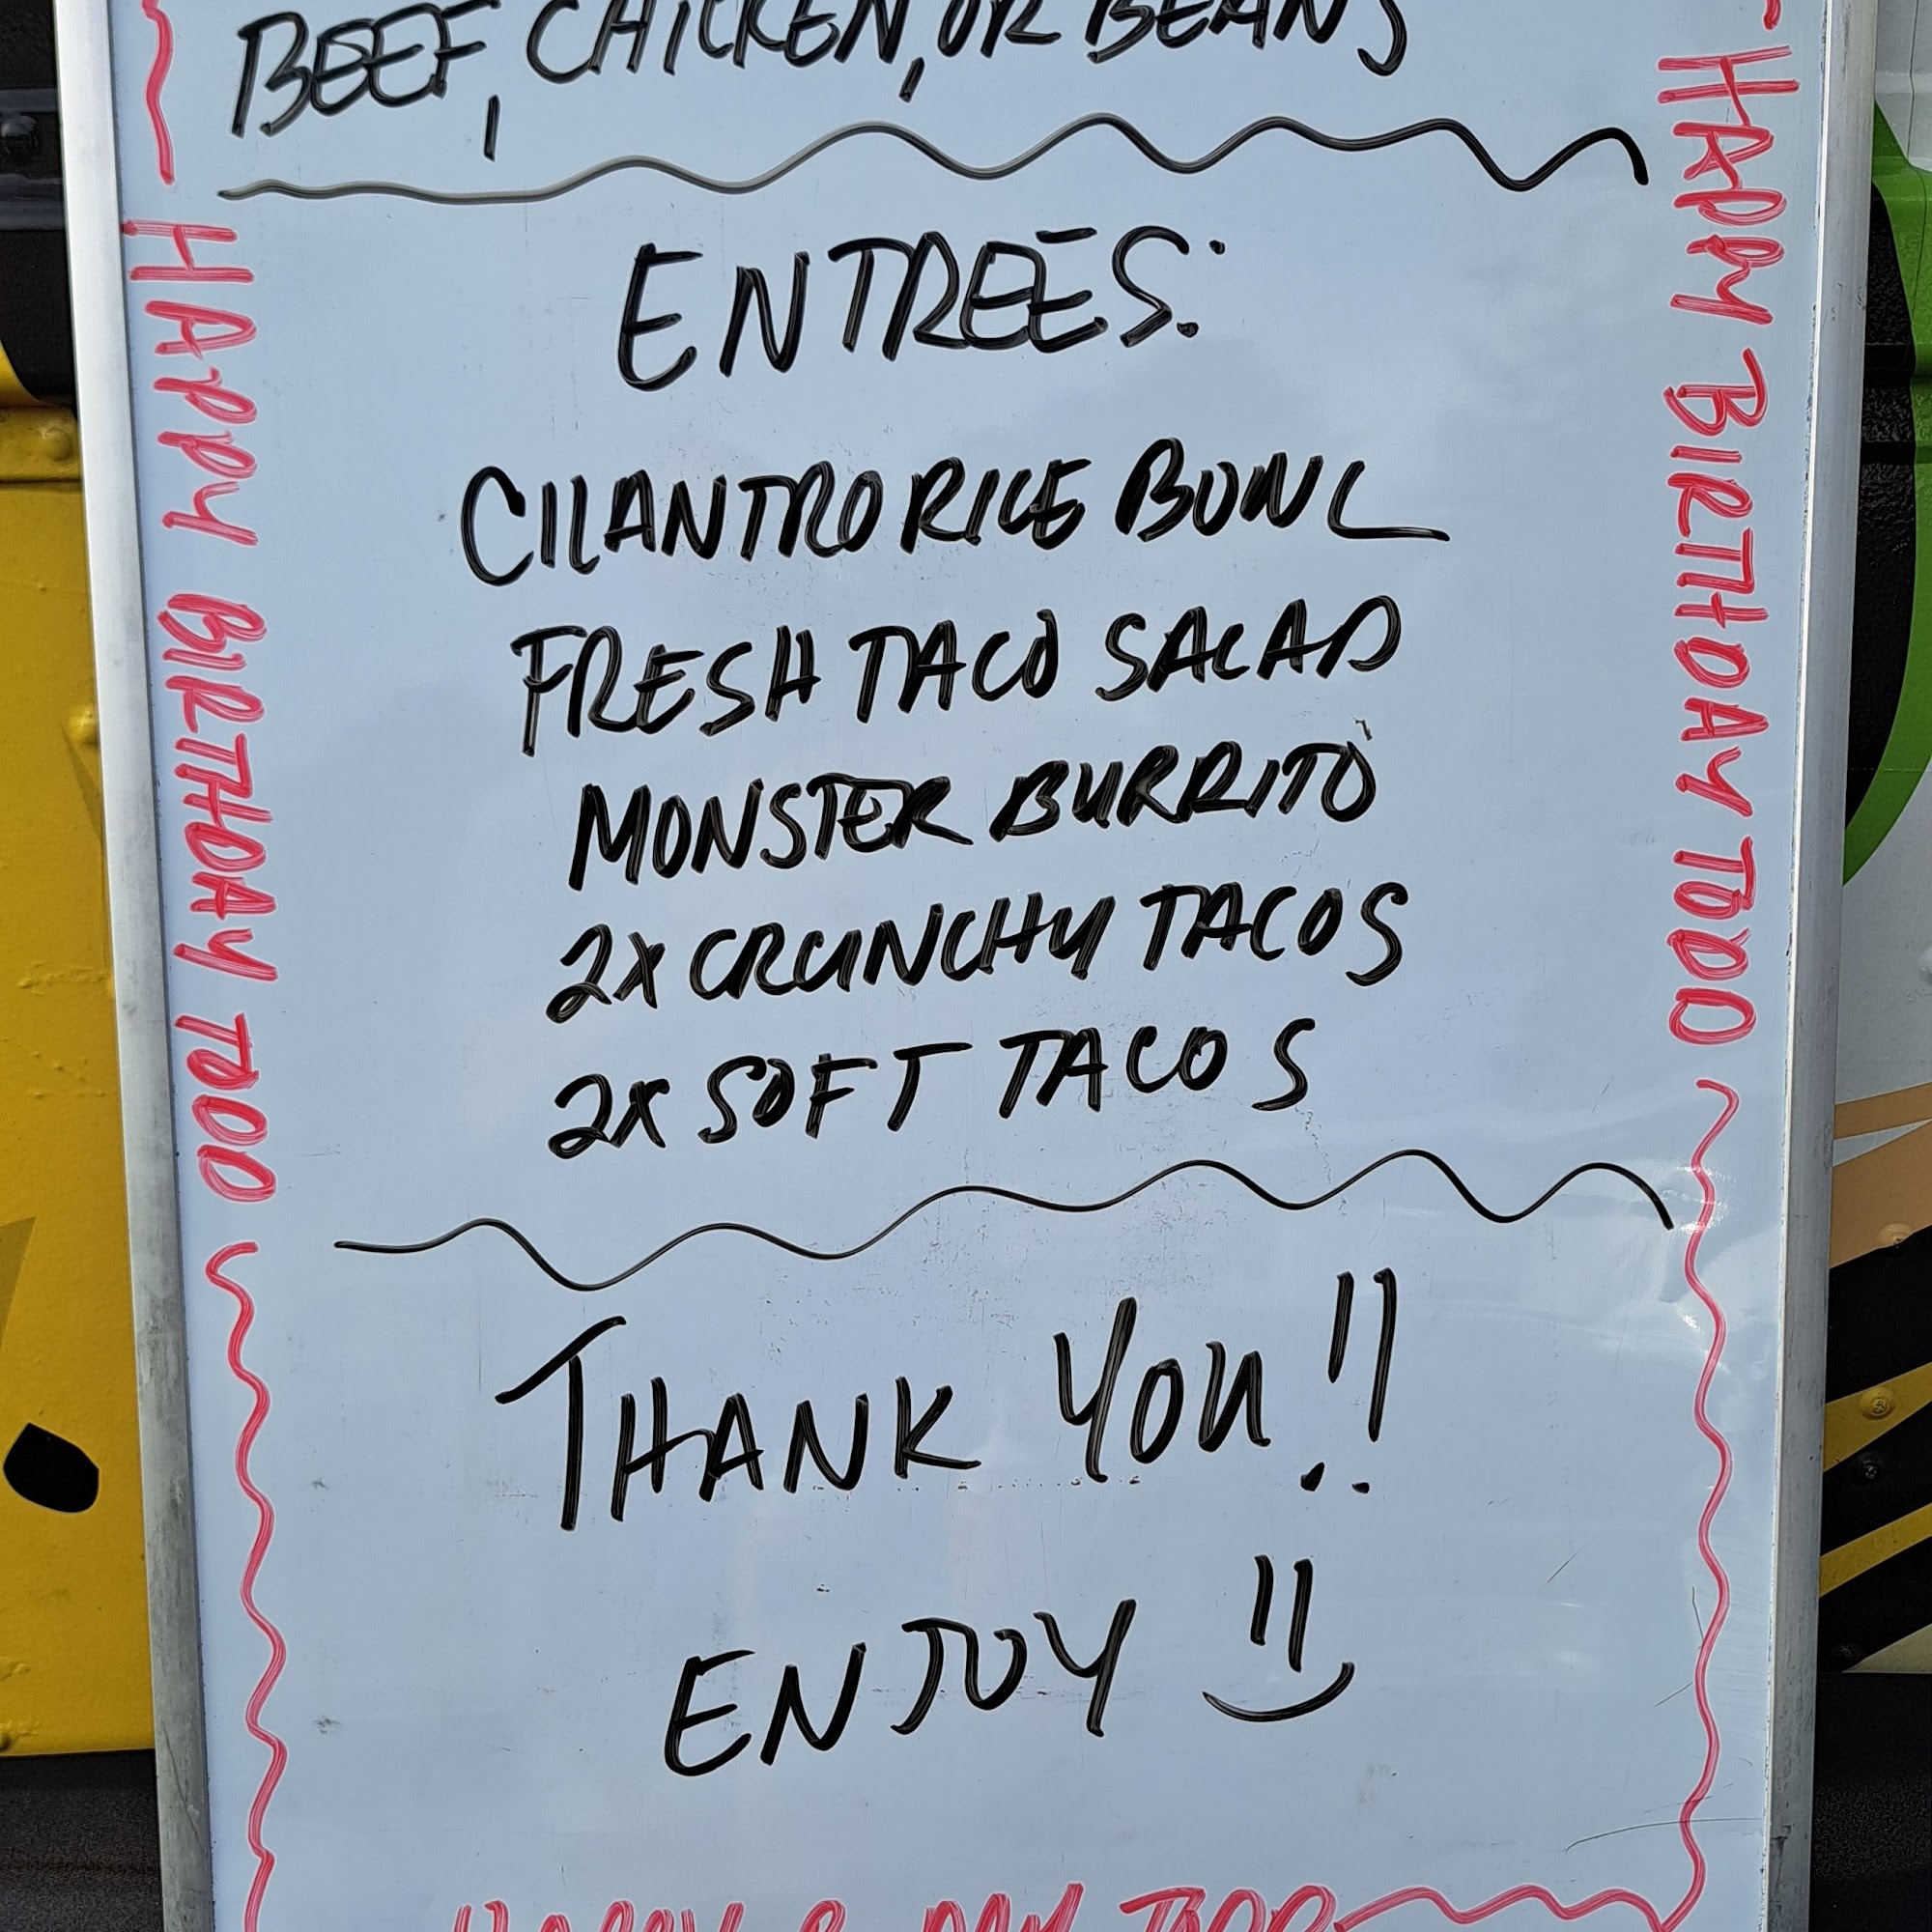 BEEF, CHICKEN, OR BEANS
ENTREÉS:
CILANTRO RICE BOWL
FRESH TACO SALAD
MONSTER BURRITO
2X CRUNCHY TACOS
2X SOFT TACOS
THANK YOU!!
ENJOY
HAPPY BIRTHDAY TODD
HAPPY BIRTHDAY TODD